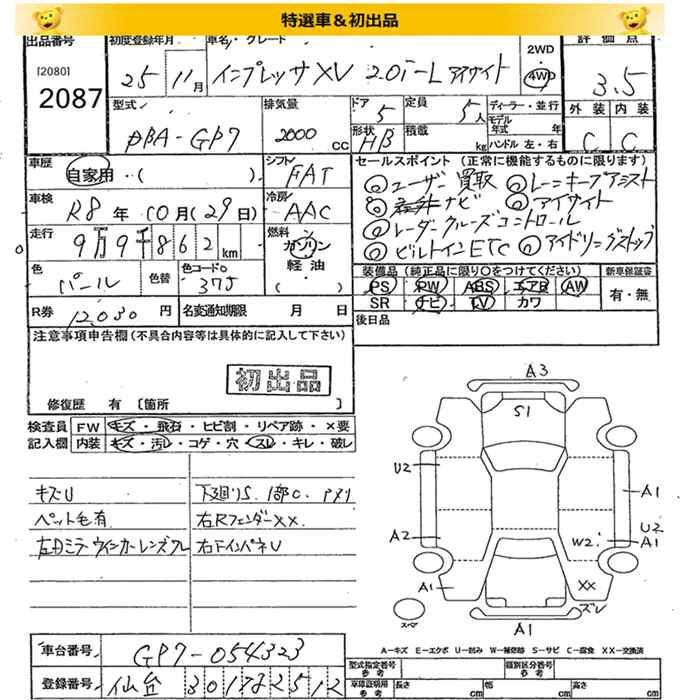 特選車&初出品
出品番号 初度登録年月 車名・グレード 2WD 評価点
[2080]
2087
25年 11月 インプレッサXV 2.0i-L アイサイト 4WD 3.5
型式 排気量 ドア 定員 ディーラー・並行 外装 内装
DBA-GP7 2000 CC 5 5人 モデル年式 年
形状 HB 積載 kg ハンドル 左・右 C C
車歴 自家用・( ) シフト FAT
セールスポイント (正常に機能するものに限ります)
◎ユーザー買取 ◎レーンキープアシスト
車検 R8年 10月(29日) 冷房 AAC
ナビ ◎アイサイト
◎レーダークルーズコントロール
走行 9万9千862km 燃料 ガソリン 軽油 ( )
◎ビルトインETC ◎アイドリングストップ
色 パール 色替 色コードNo 37J
装備品 (純正品に限り○をつけてください) 新車保証書
PS PW ABS エアB AW 有・無
SR ナビ TV カワ
R券 12,030円 名変通知期限 月 日
後日品
注意事項申告欄(不具合内容等は具体的に記入して下さい)
初出品
修復歴 有 〔箇所 〕
検査員記入欄 FW キズ・飛石・ヒビ割・リペア跡・×要
内装 キズ・汚レ・コゲ・穴・スレ・キレ・破レ
キズU 下廻りS、1部C、
ペット毛有 右RフェンダーXX
左ドアミラーウインカーレンズワレ 右FインパネU
A3
S1
U2
A1
A2 W2 U2
A1
A1 XX
ズレ
スペア A1
A=キズ E=エクボ U=凹み W=補修跡 S=サビ C=腐食 XX=交換済
車台番号 GP7-054323
型式指定番号 参考 類別区分番号 参考
登録番号 仙台 301 す 2512
車庫証明用 参考 長さ cm 幅 cm 高さ cm